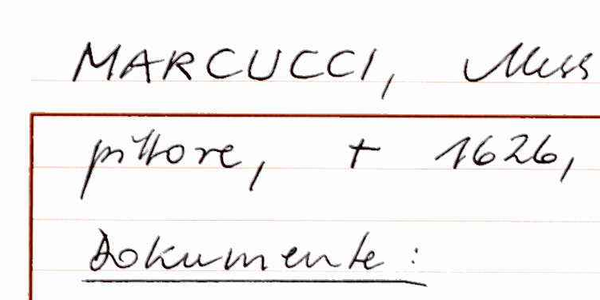 MARCUCCI, Mess
pittore, + 1626,
Dokumente: